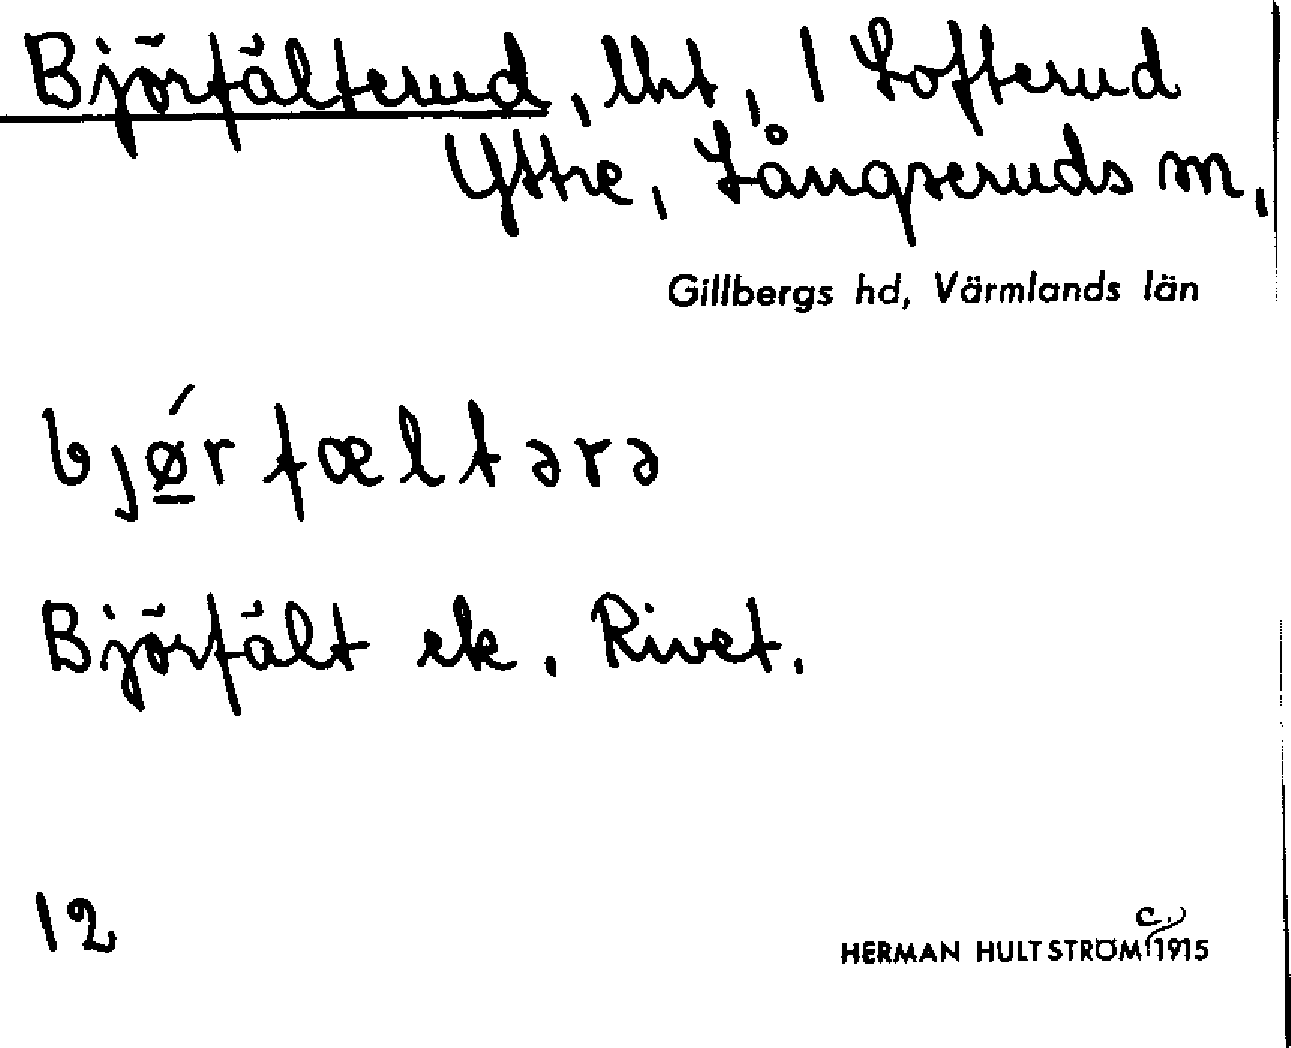 Björfälterud, lht, 1 Lofterud
Yttre, Långseruds sn,
Gillbergs hd, Värmlands län
bjǿ̲rfæltərə
Björfält ek. Rivet.
12
HERMAN HULTSTRÖM c. 1915